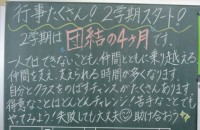 行事たくさん！2学期スタート！
2学期は団結の4ヶ月です。
一人でできないことも仲間とともに乗り越える
仲間を支え、支えられる時間が多くなります。
自分とクラスをのばすチャンスがたくさんあります。
得意なことはどんどんチャレンジ！苦手なことでも
やってみよう！失敗しても大丈夫 助け合おう